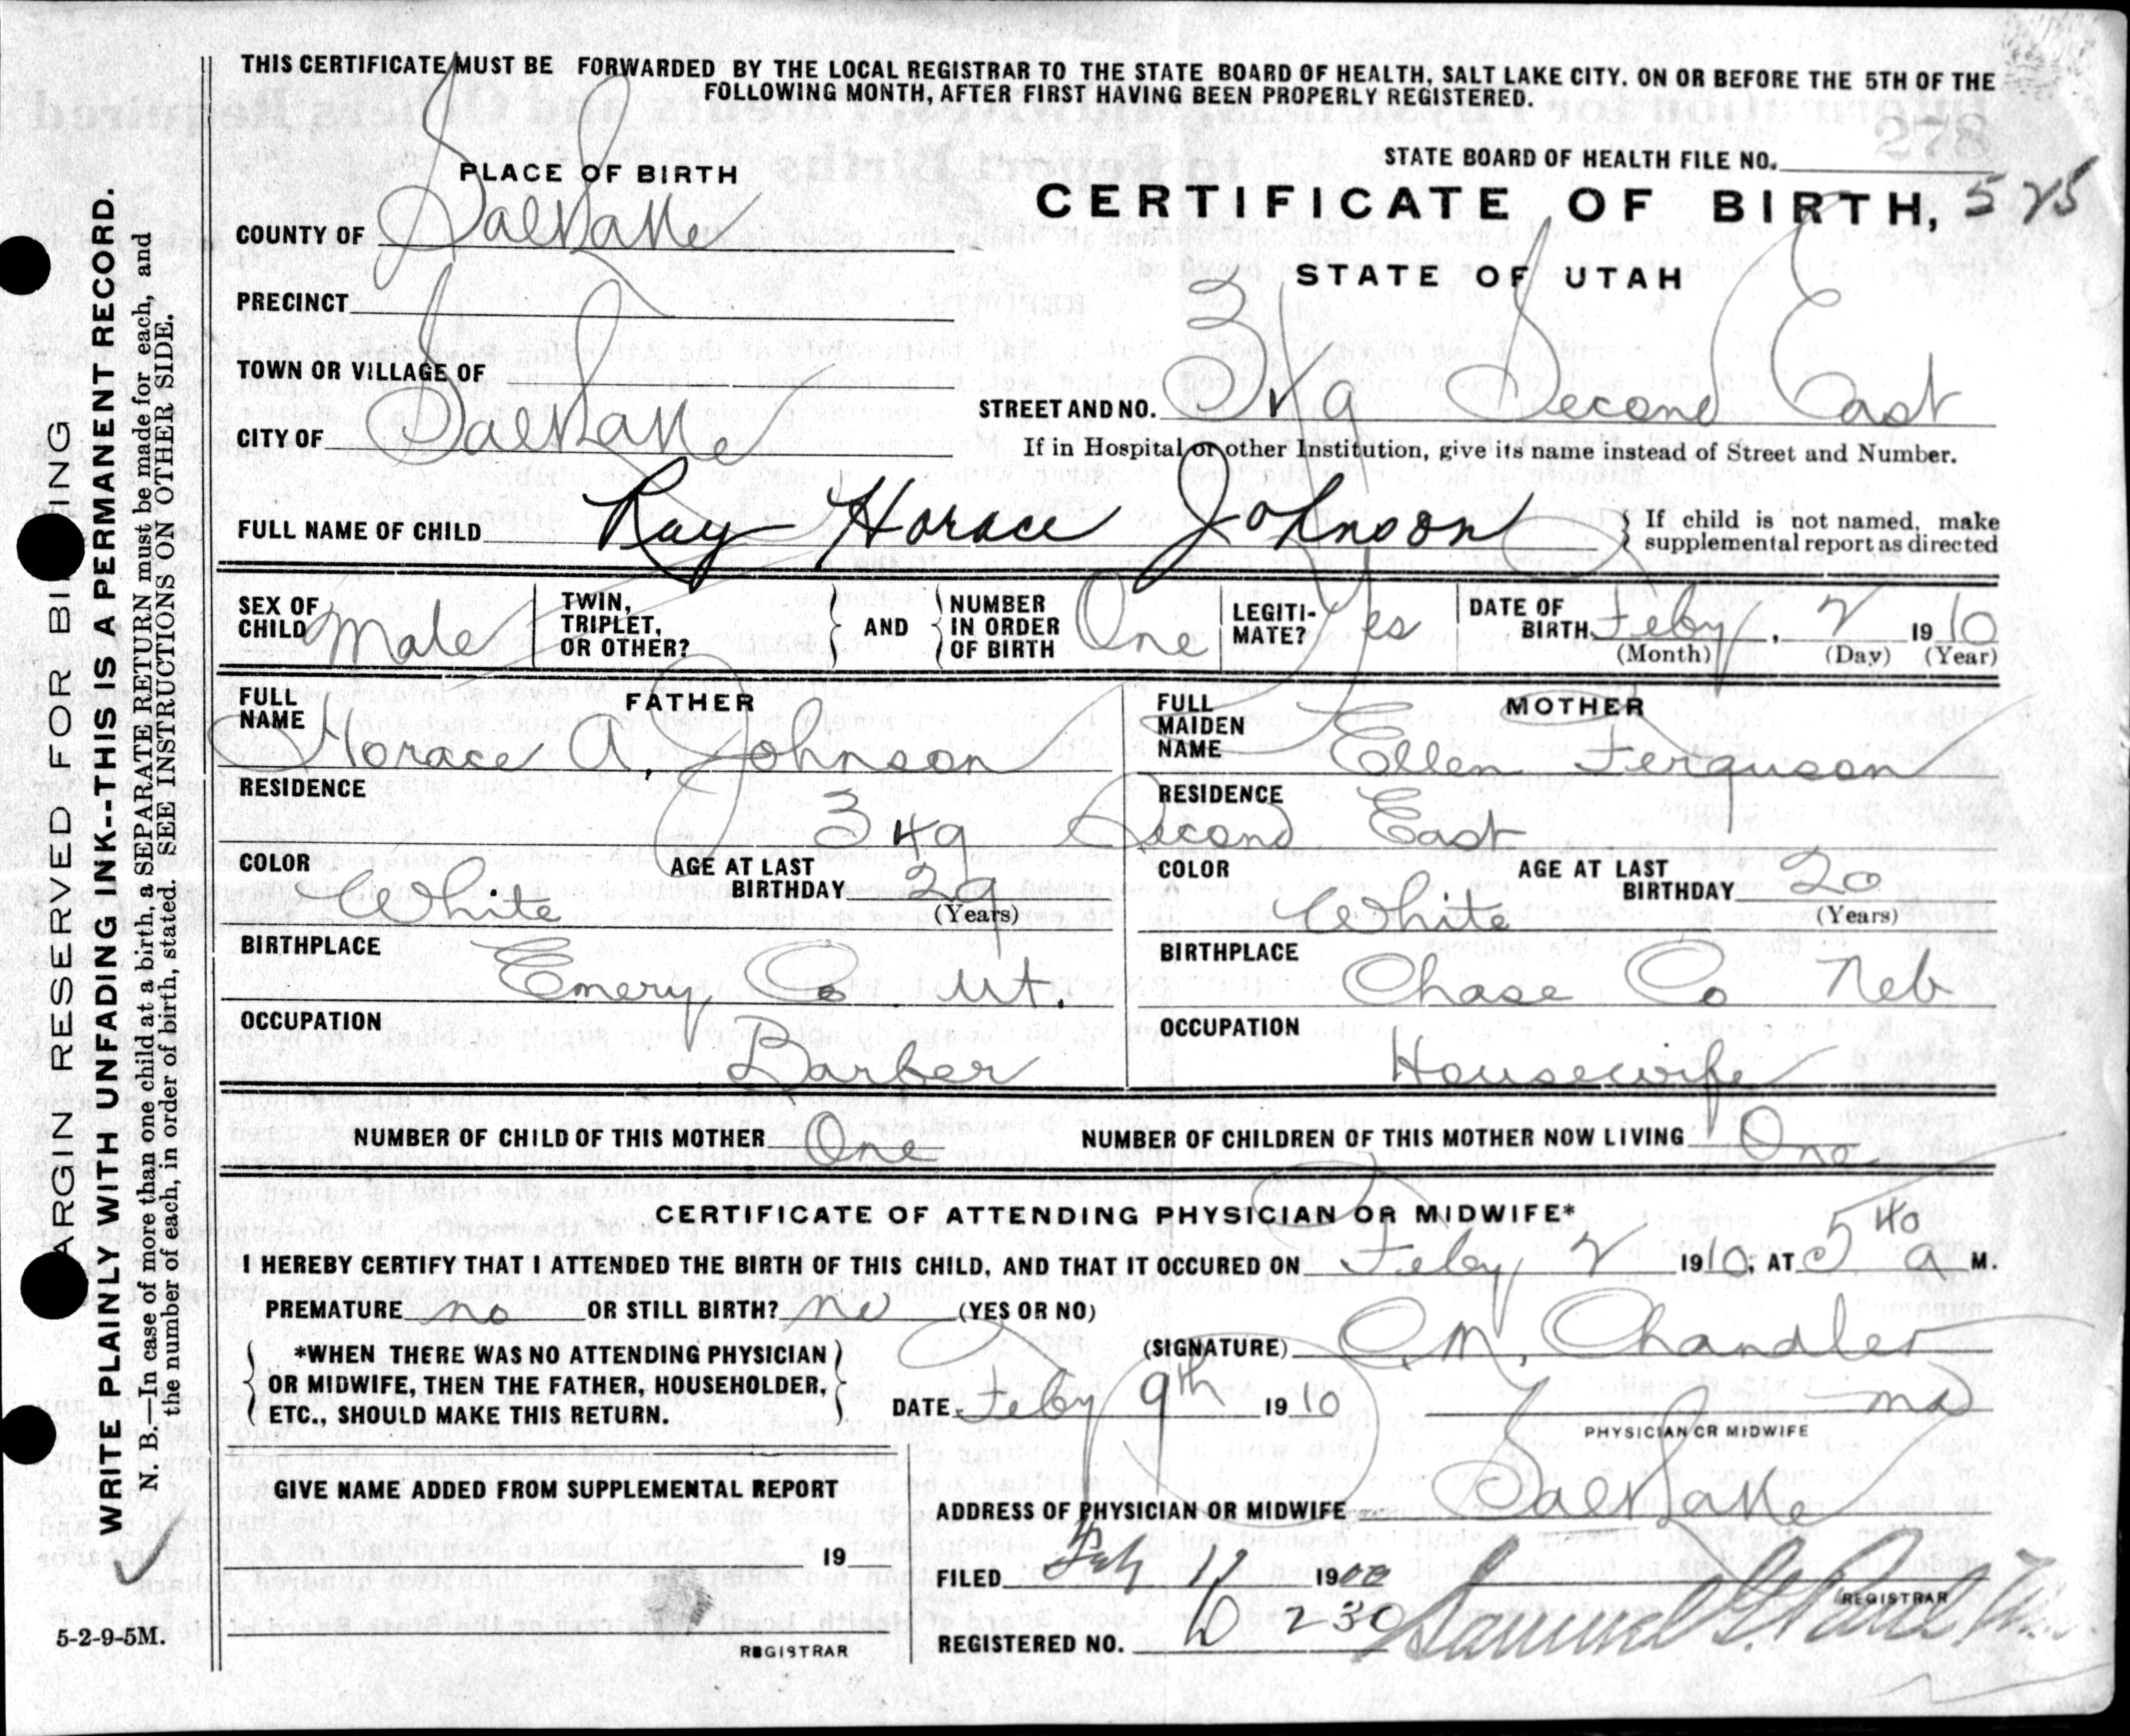 THIS CERTIFICATE MUST BE FORWARDED BY THE LOCAL REGISTRAR TO THE STATE BOARD OF HEALTH, SALT LAKE CITY. ON OR BEFORE THE 5TH OF THE
FOLLOWING MONTH, AFTER FIRST HAVING BEEN PROPERLY REGISTERED.
278
STATE BOARD OF HEALTH FILE NO.
PLACE OF BIRTH
CERTIFICATE OF BIRTH, 525
COUNTY OF Salt Lake
STATE OF UTAH
PRECINCT
TOWN OR VILLAGE OF
STREET AND NO. 349 Second East
CITY OF Salt Lake
If in Hospital or other Institution, give its name instead of Street and Number.
FULL NAME OF CHILD Ray Horace Johnson
If child is not named, make
supplemental report as directed
SEX OF CHILD Male
TWIN, TRIPLET, OR OTHER?
AND
NUMBER IN ORDER OF BIRTH One
LEGITI-MATE? Yes
DATE OF BIRTH Feby, 2 1910
(Month) (Day) (Year)
FATHER
FULL NAME Horace A. Johnson
MOTHER
FULL MAIDEN NAME Ellen Ferguson
RESIDENCE
RESIDENCE
349 Second East
COLOR White
AGE AT LAST BIRTHDAY 29
(Years)
COLOR White
AGE AT LAST BIRTHDAY 20
(Years)
BIRTHPLACE Emery Co. Ut.
BIRTHPLACE Chase Co Neb
OCCUPATION Barber
OCCUPATION Housewife
NUMBER OF CHILD OF THIS MOTHER One
NUMBER OF CHILDREN OF THIS MOTHER NOW LIVING One
CERTIFICATE OF ATTENDING PHYSICIAN OR MIDWIFE*
I HEREBY CERTIFY THAT I ATTENDED THE BIRTH OF THIS CHILD, AND THAT IT OCCURED ON Feby 2 1910; AT 5 40 a M.
PREMATURE no OR STILL BIRTH? no (YES OR NO)
*WHEN THERE WAS NO ATTENDING PHYSICIAN
OR MIDWIFE, THEN THE FATHER, HOUSEHOLDER,
ETC., SHOULD MAKE THIS RETURN.
(SIGNATURE) C. M. Chandler
DATE Feby 9th 1910
md
PHYSICIAN OR MIDWIFE
GIVE NAME ADDED FROM SUPPLEMENTAL REPORT
ADDRESS OF PHYSICIAN OR MIDWIFE Salt Lake
19
REGISTRAR
FILED Feby 11 19
REGISTRAR
REGISTERED NO. 230
Samuel G. Paul
MARGIN RESERVED FOR BINDING
WRITE PLAINLY WITH UNFADING INK--THIS IS A PERMANENT RECORD.
N. B.—In case of more than one child at a birth, a SEPARATE RETURN must be made for each, and
the number of each, in order of birth, stated. SEE INSTRUCTIONS ON OTHER SIDE.
5-2-9-5M.